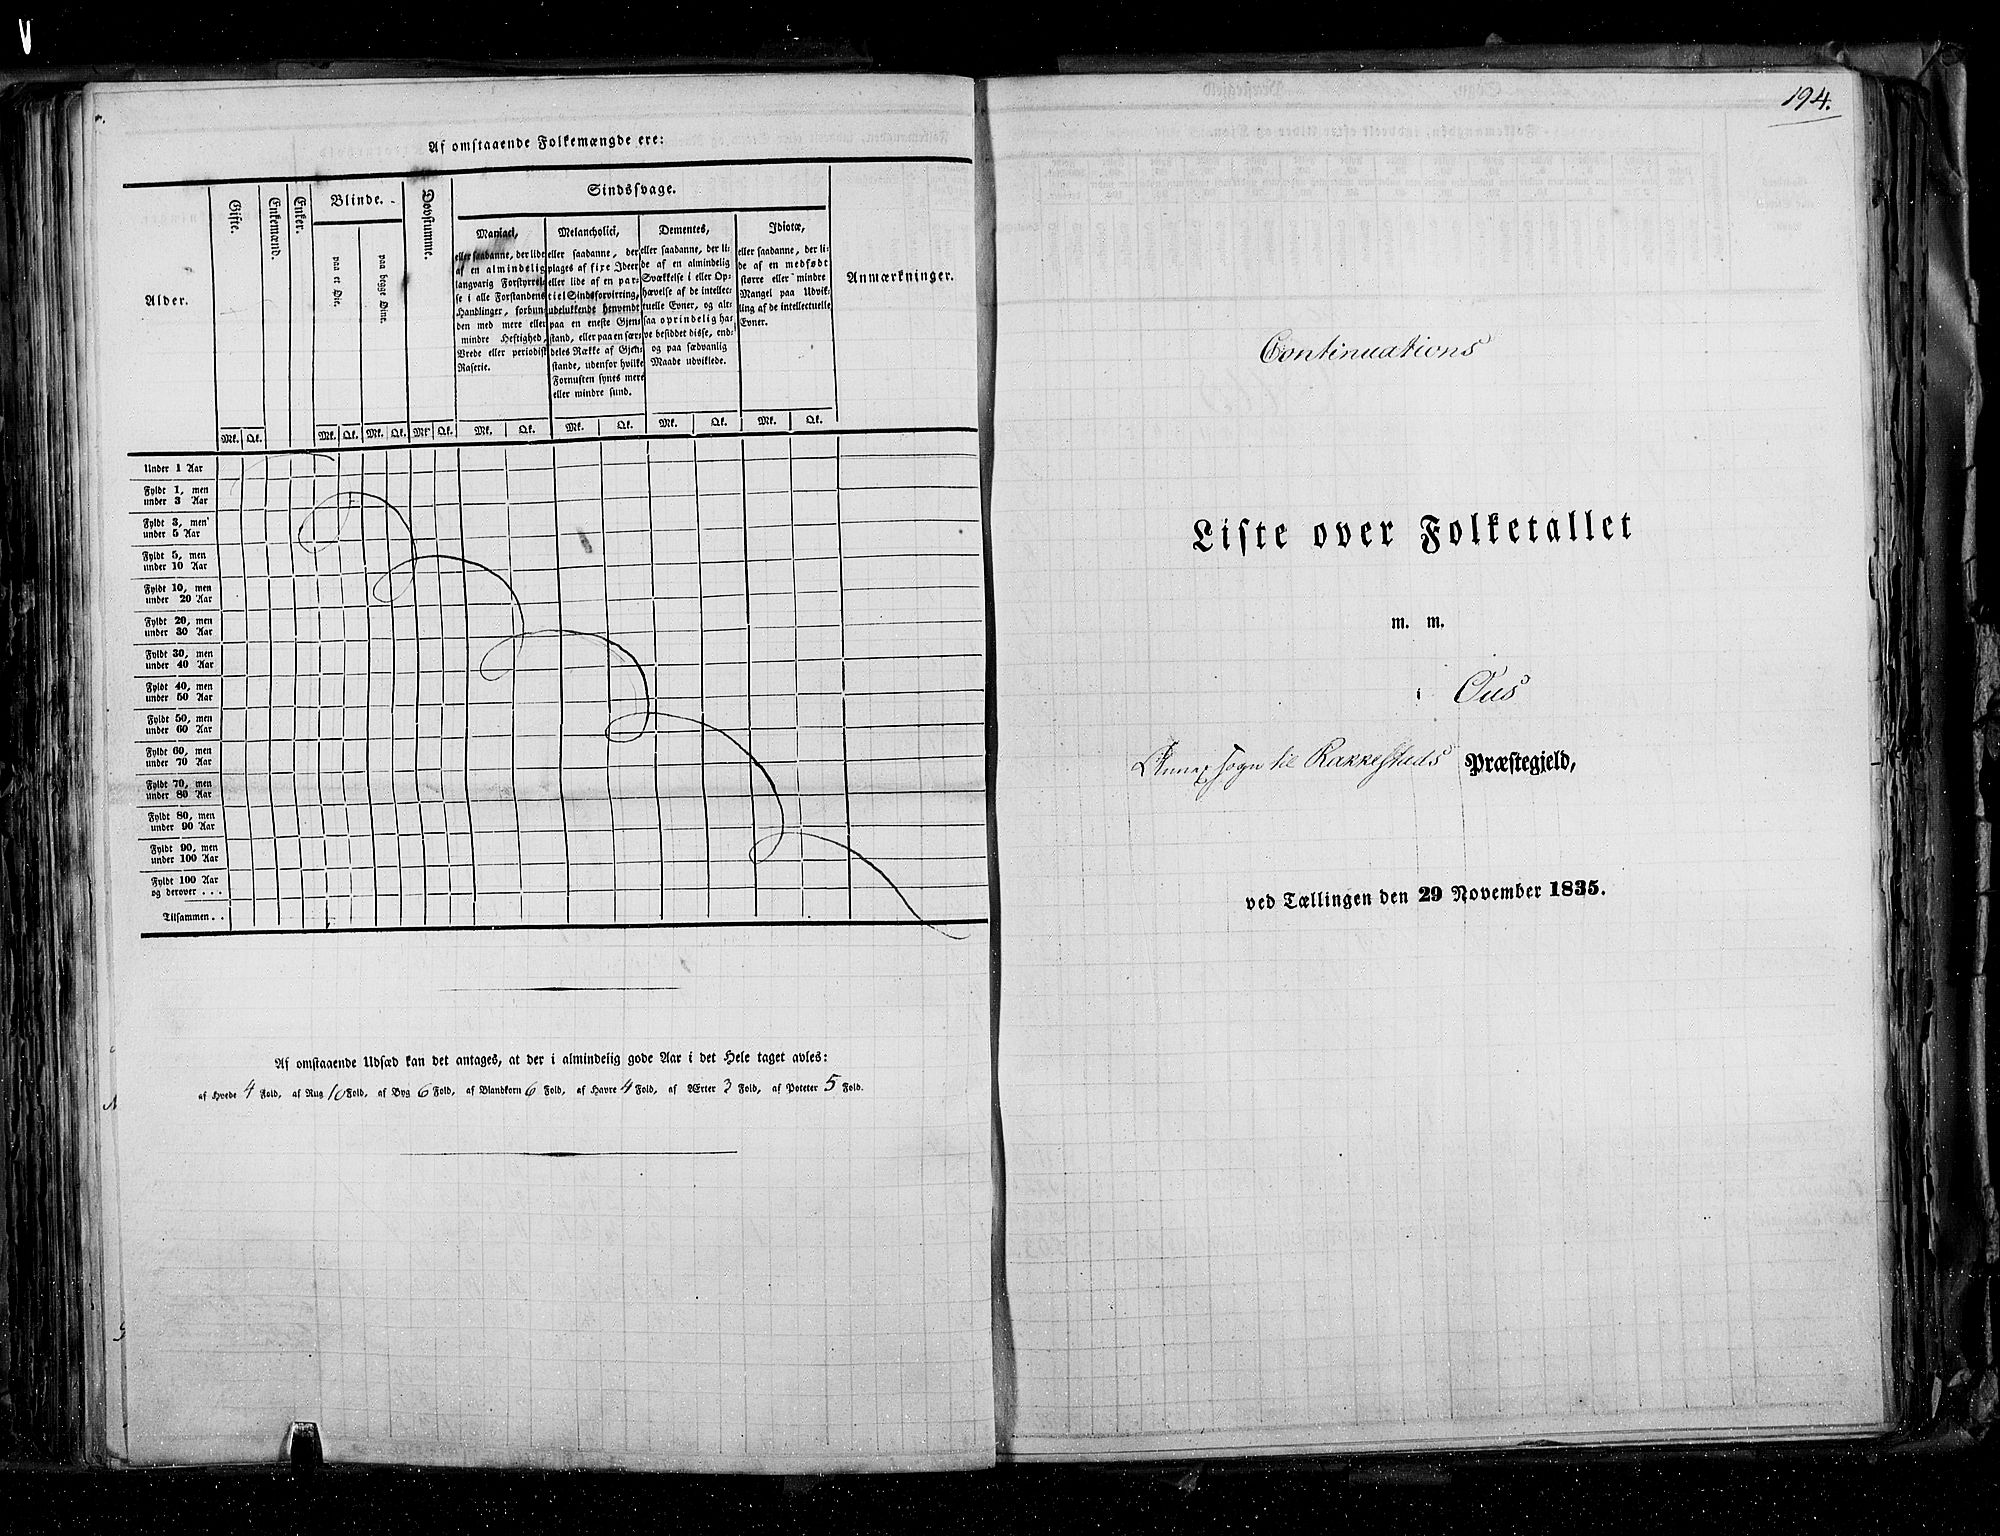 Af omstaaende Folkemængde ere:
Alder.
Gifte.
Enkemænd.
Enker.
Blinde.
paa et Øie.
paa begge Øine.
Døvstumme.
Sindssvage.
Maniaci,
eller saadanne, der lide
af en almindelig
langvarig Forstyrrel-
se i alle Forstandens
Handlinger, forbun-
den med mere eller
mindre Heftighed,
Vrede eller periodisk
Raserie.
Melancholici,
eller saadanne, der
plages af fixe Ideer
eller lide af en par-
tiel Sindsforvirring,
udelukkende henvendt
paa en eneste Gjen-
stand, eller paa en sær-
deles Række af Gjen-
stande, udenfor hvilke
Fornuften synes mere
eller mindre sund.
Dementes,
eller saadanne, der li-
de af en almindelig
Svækkelse i eller Op-
hævelse af de intellec-
tuelle Evner, og alt-
saa oprindelig ha-
ve besiddet disse, end-
og paa sædvanlig
Maade udviklede.
Idiotæ,
eller saadanne, der li-
de af en medfødt
større eller mindre
Mangel paa Udvik-
ling af de intellectuelle
Evner.
Anmærkninger.
Mk. Qk. Mk. Qk. Mk. Qk. Mk Qk. Mk. Qk. Mk. Qk. Mk. Qk. Mk. Qk.
Under 1 Aar
Fyldt 1, men
under 3 Aar
Fyldt 3, men
under 5 Aar
Fyldt 5, men
under 10 Aar
Fyldt 10, men
under 20 Aar
Fyldt 20, men
under 30 Aar
Fyldt 30, men
under 40 Aar
Fyldt 40, men
under 50 Aar
Fyldt 50, men
under 60 Aar
Fyldt 60, men
under 70 Aar
Fyldt 70, men
under 80 Aar
Fyldt 80, men
under 90 Aar
Fyldt 90, men
under 100 Aar
Fyldt 100 Aar
og derover . . .
Tilsammen . .
Af omstaaende Udsæd kan det antages, at der i almindelig gode Aar i det Hele taget avles:
af Hvede 4 Fold, af Rug 10 Fold, af Byg 6 Fold, af Blandkorn 6 Fold, af Havre 4 Fold, af Ærter 3 Fold, af Poteter 5 Fold.
194.
Continuations
Liste over Folketallet
m. m.
i Øus
Annexsogn til Rakkestads Præstegjeld,
ved Tællingen den 29 November 1835.